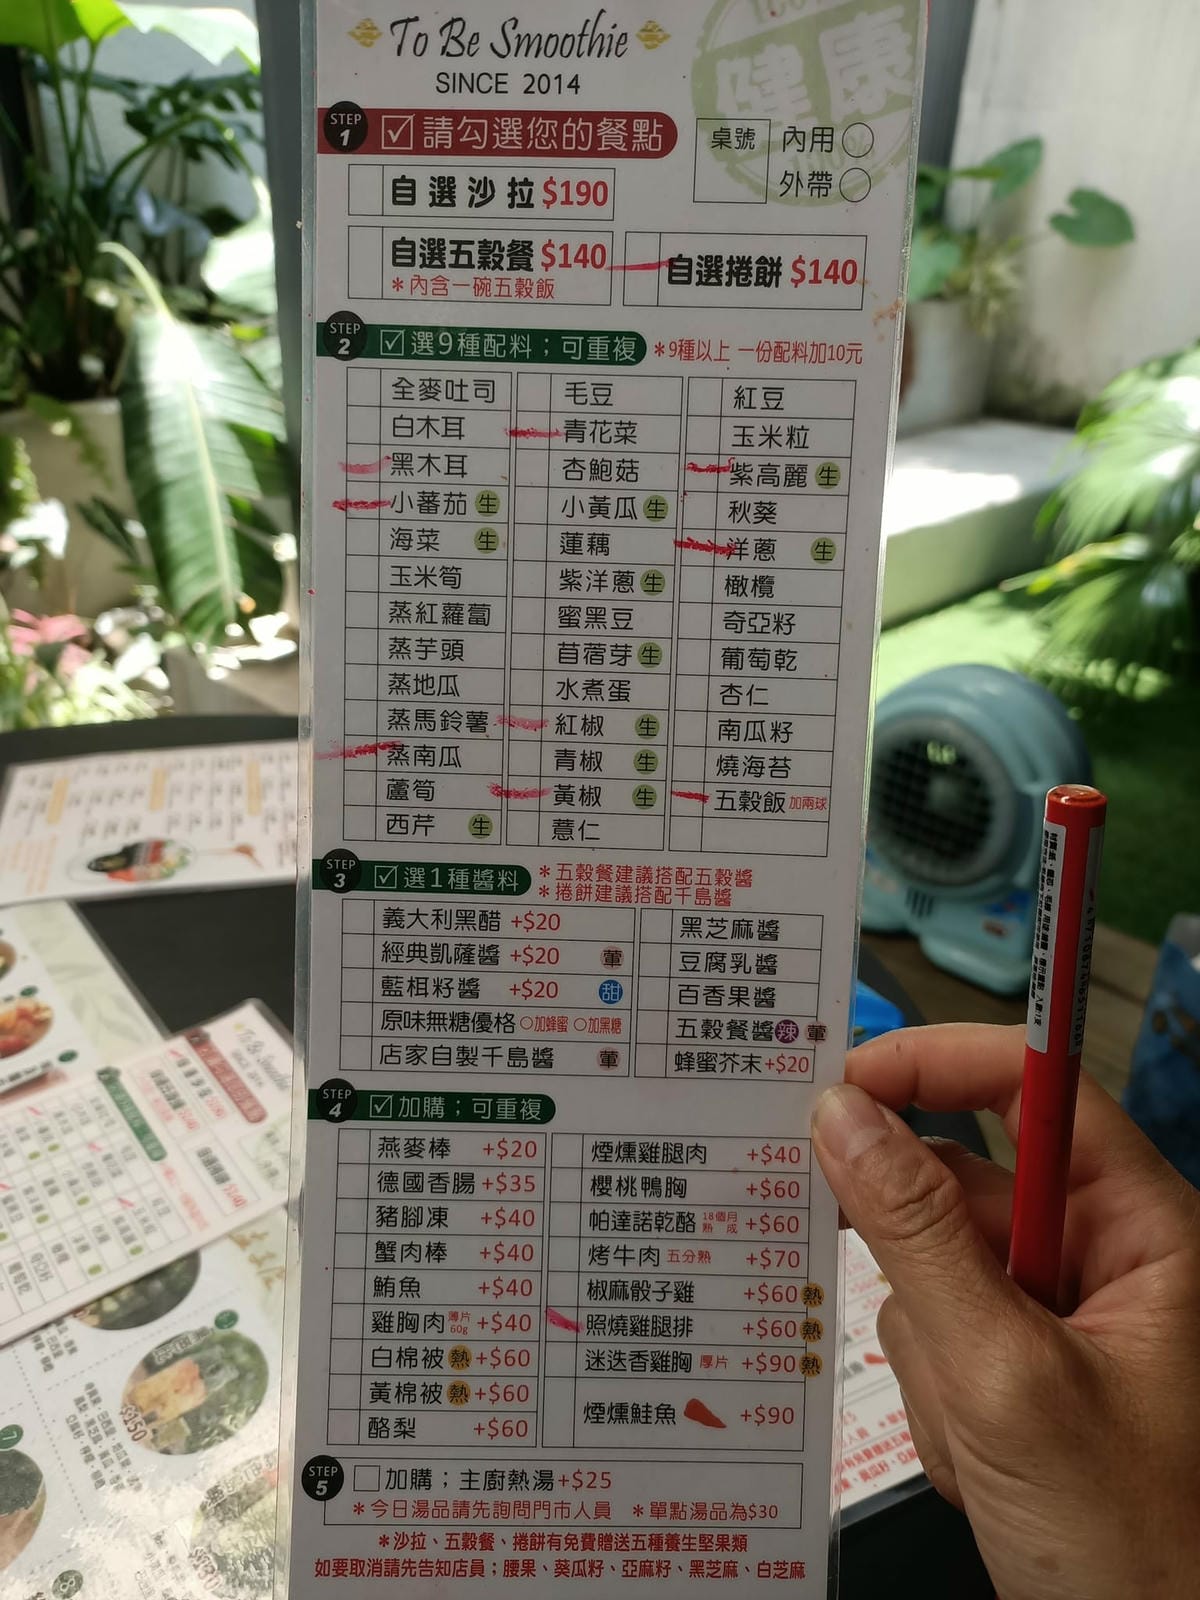 To Be Smoothie
SINCE 2014
健康
STEP 1 請勾選您的餐點
桌號 內用
外帶
自選沙拉 $190
自選五穀餐 $140
*內含一碗五穀飯
自選捲餅 $140
STEP 2 選9種配料；可重複 *9種以上 一份配料加10元
全麥吐司 毛豆 紅豆
白木耳 青花菜 玉米粒
黑木耳 杏鮑菇 紫高麗 生
小蕃茄 生 小黃瓜 生 秋葵
海菜 生 蓮藕 洋蔥 生
玉米筍 紫洋蔥 生 橄欖
蒸紅蘿蔔 蜜黑豆 奇亞籽
蒸芋頭 苜蓿芽 生 葡萄乾
蒸地瓜 水煮蛋 杏仁
蒸馬鈴薯 紅椒 生 南瓜籽
蒸南瓜 青椒 生 燒海苔
蘆筍 黃椒 生 五穀飯 加兩球
西芹 生 薏仁
STEP 3 選1種醬料 *五穀餐建議搭配五穀醬
*捲餅建議搭配千島醬
義大利黑醋 +$20 黑芝麻醬
經典凱薩醬 +$20 葷 豆腐乳醬
藍枸籽醬 +$20 甜 百香果醬
原味無糖優格 ○加蜂蜜 ○加黑糖 五穀餐醬 辣 葷
店家自製千島醬 葷 蜂蜜芥末 +$20
STEP 4 加購；可重複
燕麥棒 +$20 煙燻雞腿肉 +$40
德國香腸 +$35 櫻桃鴨胸 +$60
豬腳凍 +$40 帕達諾乾酪 18個月熟成 +$60
蟹肉棒 +$40 烤牛肉 五分熟 +$70
鮪魚 +$40 椒麻骰子雞 +$60 熱
雞胸肉 薄片60g +$40 照燒雞腿排 +$60 熱
白棉被 熱 +$60 迷迭香雞胸 厚片 +$90 熱
黃棉被 熱 +$60 煙燻鮭魚 +$90
酪梨 +$60
STEP 5 加購；主廚熱湯+$25
*今日湯品請先詢問門市人員 *單點湯品為$30
*沙拉、五穀餐、捲餅有免費贈送五種養生堅果類
如要取消請先告知店員；腰果、葵瓜籽、亞麻籽、黑芝麻、白芝麻